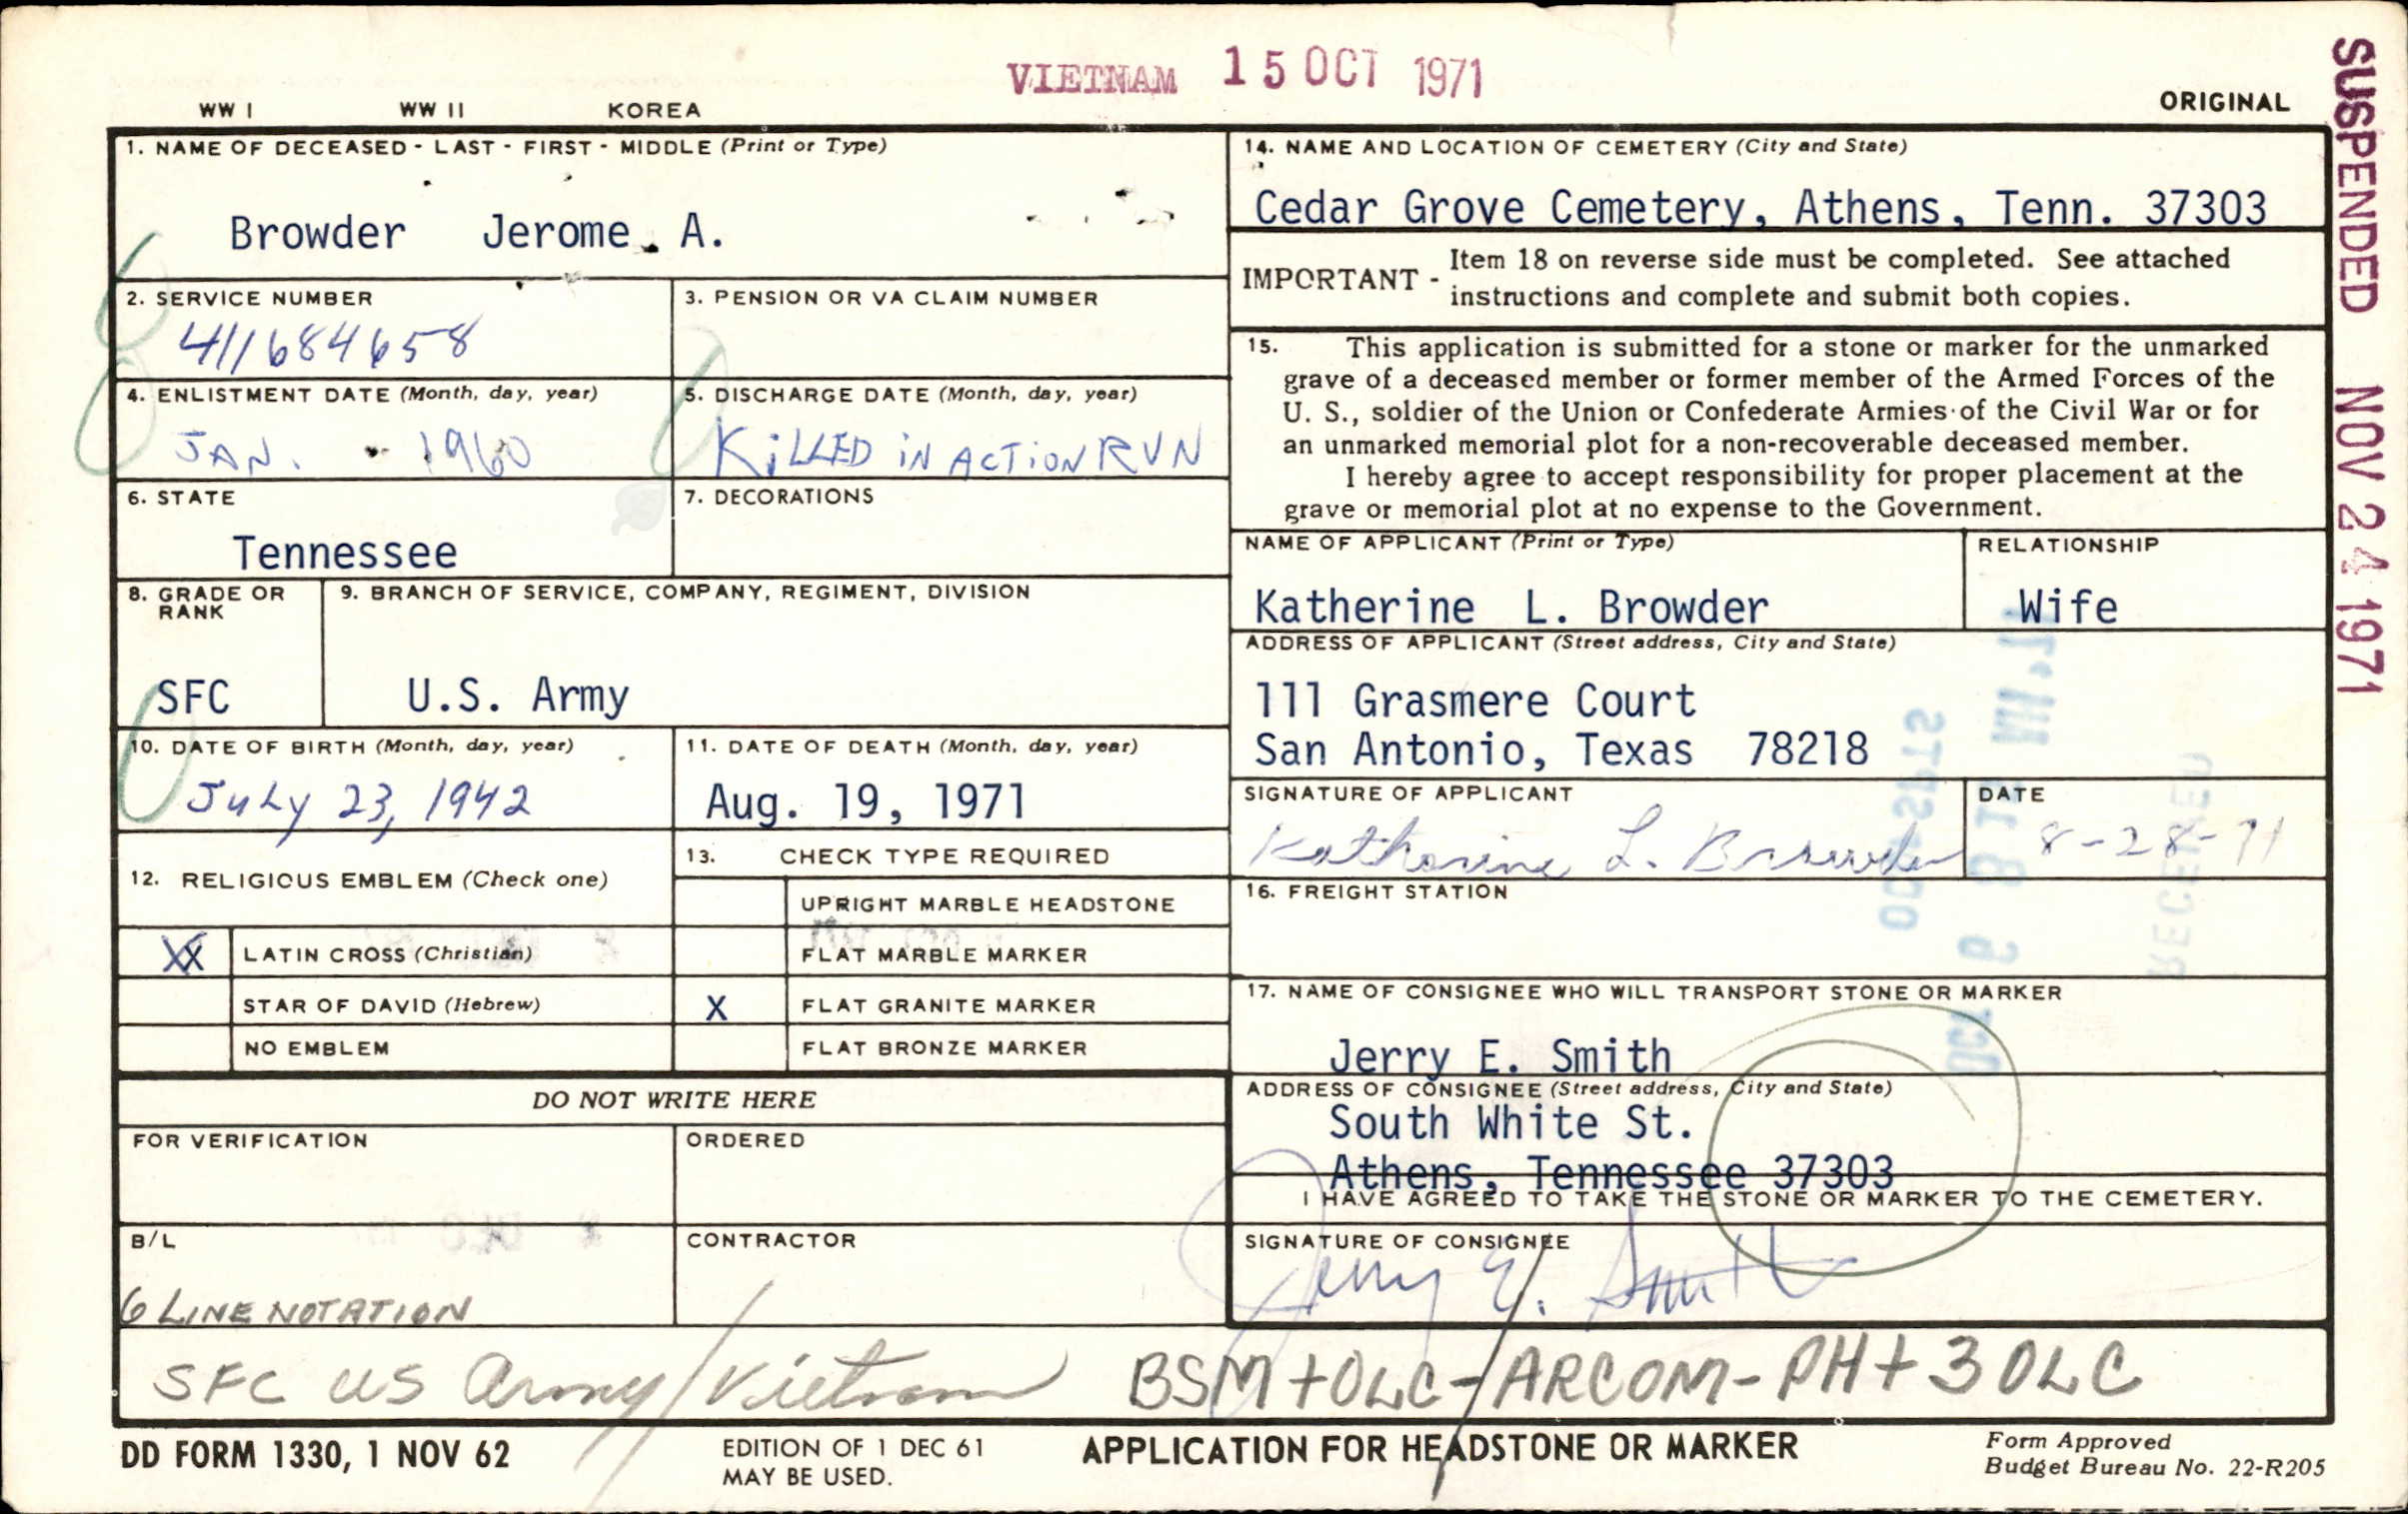 VIETNAM 15 OCT 1971
WW I WW II KOREA
ORIGINAL
SUSPENDED NOV 24 1971
1. NAME OF DECEASED - LAST - FIRST - MIDDLE (Print or Type)
Browder Jerome A.
2. SERVICE NUMBER
411684658
3. PENSION OR VA CLAIM NUMBER
4. ENLISTMENT DATE (Month, day, year)
JAN. - 1960
5. DISCHARGE DATE (Month, day, year)
KiLLED iN ACTiON RVN
6. STATE
Tennessee
7. DECORATIONS
8. GRADE OR
RANK
SFC
9. BRANCH OF SERVICE, COMPANY, REGIMENT, DIVISION
U.S. Army
10. DATE OF BIRTH (Month, day, year)
JuLy 23, 1942
11. DATE OF DEATH (Month, day, year)
Aug. 19, 1971
12. RELIGIOUS EMBLEM (Check one)
XX LATIN CROSS (Christian)
STAR OF DAVID (Hebrew)
NO EMBLEM
13. CHECK TYPE REQUIRED
UPRIGHT MARBLE HEADSTONE
FLAT MARBLE MARKER
X FLAT GRANITE MARKER
FLAT BRONZE MARKER
DO NOT WRITE HERE
FOR VERIFICATION
ORDERED
B/L
6 LINE NOTATION
CONTRACTOR
14. NAME AND LOCATION OF CEMETERY (City and State)
Cedar Grove Cemetery, Athens, Tenn. 37303
IMPORTANT - Item 18 on reverse side must be completed. See attached
instructions and complete and submit both copies.
15. This application is submitted for a stone or marker for the unmarked
grave of a deceased member or former member of the Armed Forces of the
U. S., soldier of the Union or Confederate Armies of the Civil War or for
an unmarked memorial plot for a non-recoverable deceased member.
I hereby agree to accept responsibility for proper placement at the
grave or memorial plot at no expense to the Government.
NAME OF APPLICANT (Print or Type)
Katherine L. Browder
RELATIONSHIP
Wife
ADDRESS OF APPLICANT (Street address, City and State)
111 Grasmere Court
San Antonio, Texas 78218
SIGNATURE OF APPLICANT
Katherine L. Browder
DATE
8-28-71
16. FREIGHT STATION
17. NAME OF CONSIGNEE WHO WILL TRANSPORT STONE OR MARKER
Jerry E. Smith
ADDRESS OF CONSIGNEE (Street address, City and State)
South White St.
Athens, Tennessee 37303
I HAVE AGREED TO TAKE THE STONE OR MARKER TO THE CEMETERY.
SIGNATURE OF CONSIGNEE
Jerry E. Smith
SFC US Army/Vietnam BSM+OLC-/ARCOM-PH+3OLC
DD FORM 1330, 1 NOV 62
EDITION OF 1 DEC 61
MAY BE USED.
APPLICATION FOR HEADSTONE OR MARKER
Form Approved
Budget Bureau No. 22-R205